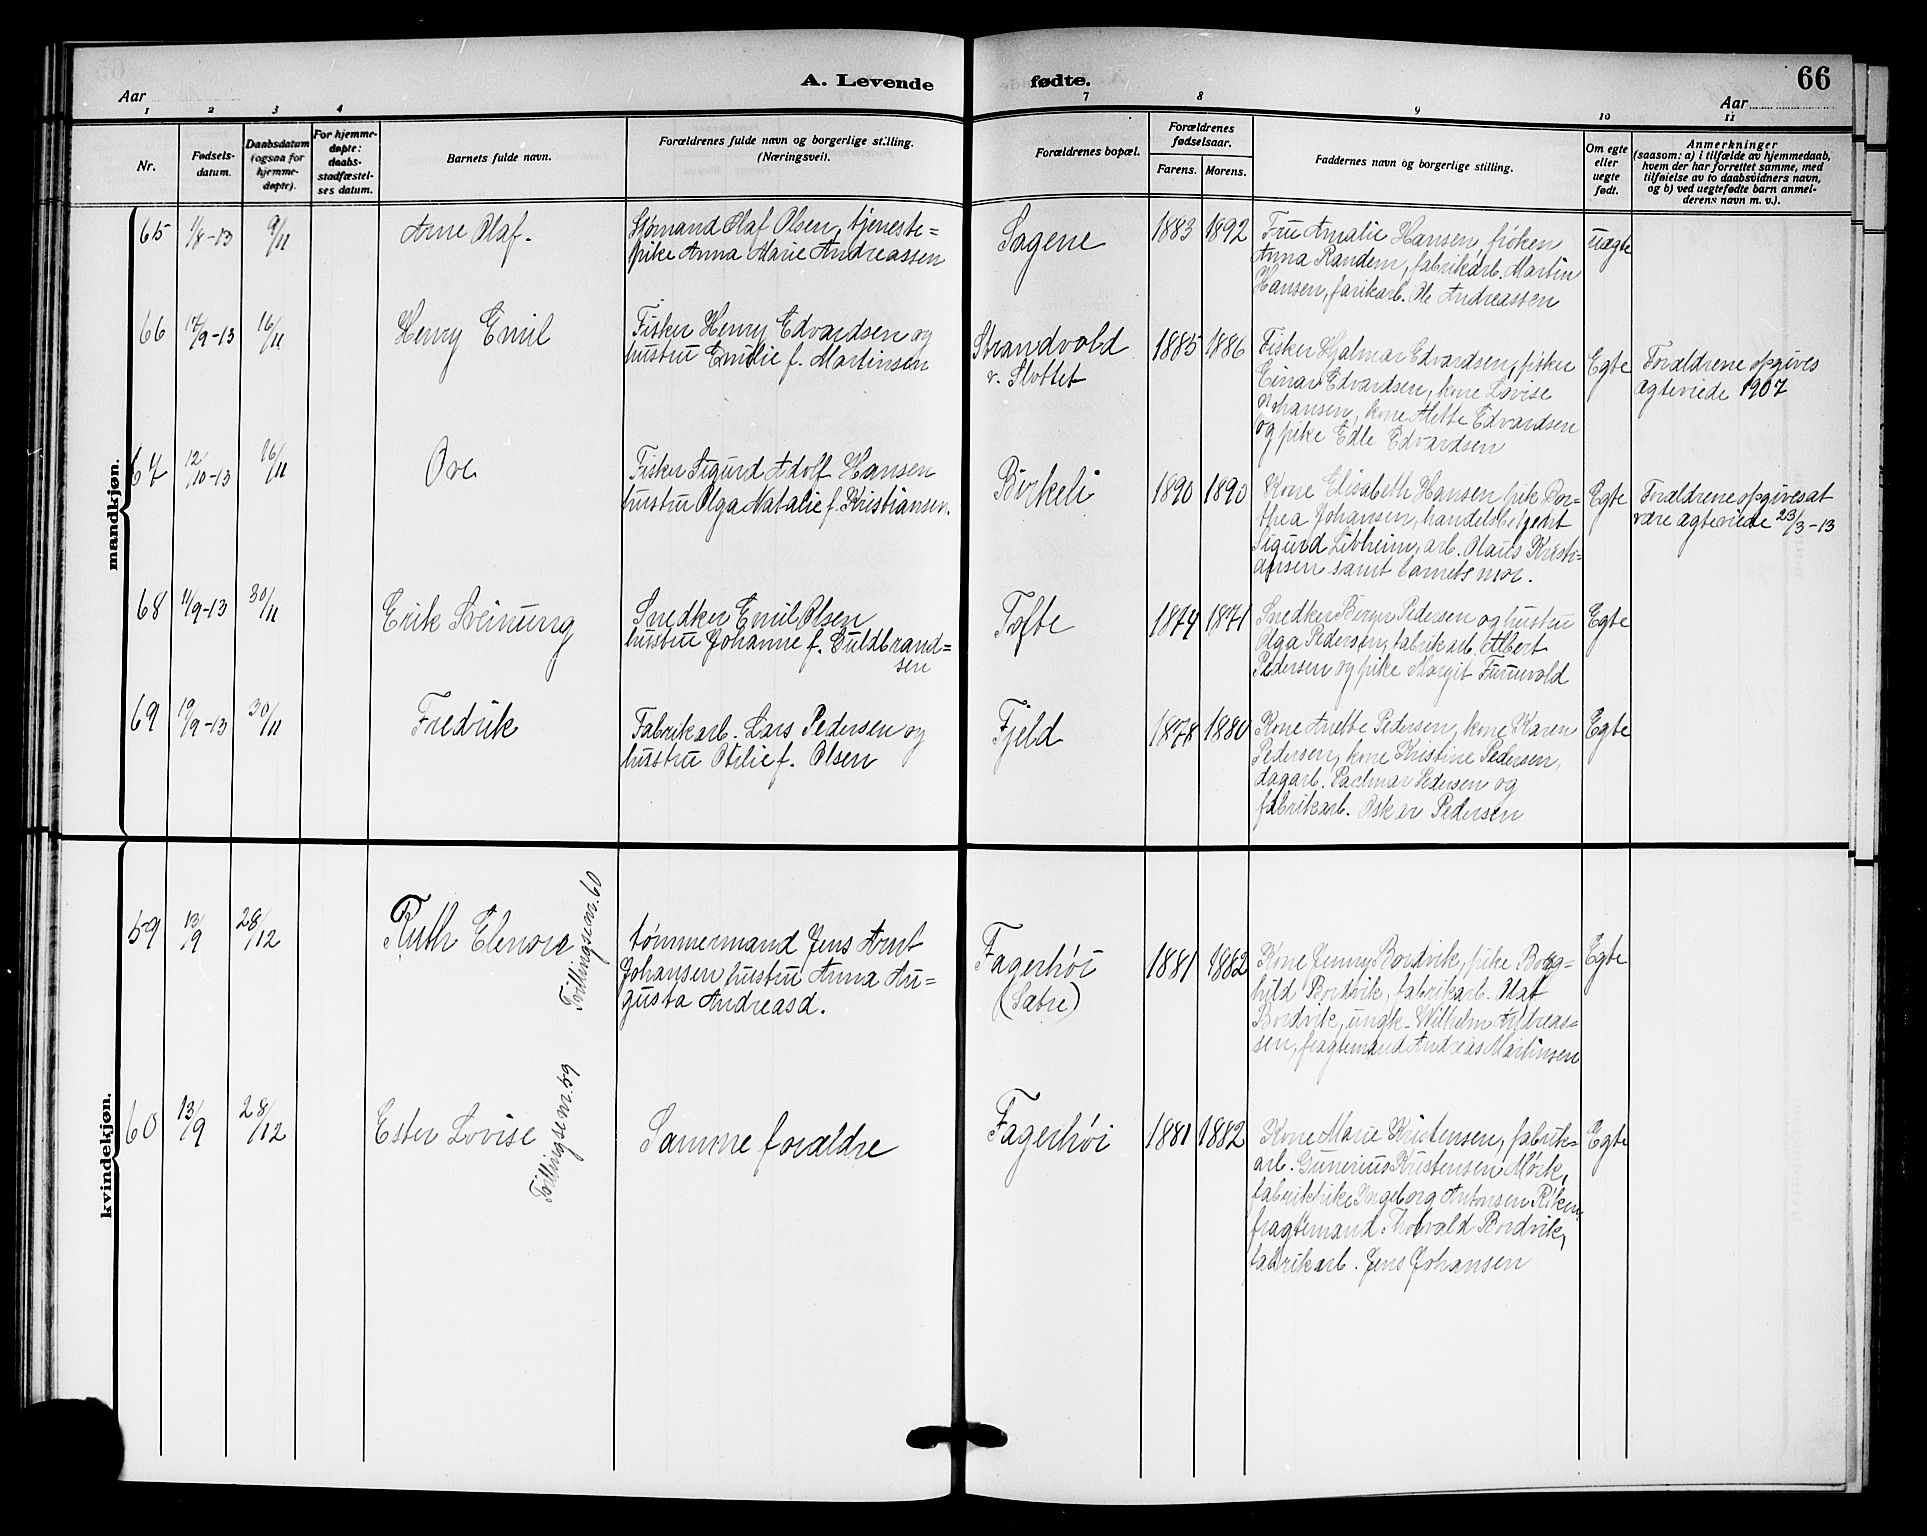 A. Levende
fødte.
66
Aar
Aar
1 2 3 4 7 8 9 10 11
Nr.
Fødsels-
datum.
Daabsdatum
(ogsaa for
hjemme-
døpte).
For hjemme-
døpte:
daabs-
stadfæstel-
ses datum.
Barnets fulde navn.
Forældrenes fulde navn og borgerlige stilling.
(Næringsvei).
Forældrenes bopæl.
Forældrenes
fødselsaar.
Farens. Morens.
Faddernes navn og borgerlige stilling.
Om egte
eller
uegte
født.
Anmerkninger
(saasom: a) i tilfælde av hjemmedaab,
hvem der har forrettet samme, med
tilføielse av to daabsvidners navn,
og b) ved uegtefødte barn anmel-
derens navn m. v.).
mandkjøn.
65
1/8-13
9/11
Arne Olaf.
Sjømand Olaf Olsen, tjeneste=
pike Anna Marie Andreassen
Sagene
1883
1892
Fru Amalie Hansen, frøken
Anna Randem, fabrikarb. Martin
Hansen, farikarb. Ole Andreassen
uægte
66
17/9-13
16/11
Henry Emil
Fisker Henry Edvardsen og
hustru Emilie f. Martinsen
Strandvold
v. Slottet
1885
1886
Fisker Hjalmar Edvardsen, fisker
Einar Edvardsen, kone Lovise
Johansen, kone Alette Edvardsen
og pike Edle Edvardsen
Egte
Forældrene opgives
ægteviede 1907
67
12/10-13
16/11
Ove
Fisker Sigurd Adolf Hansen
hustru Olga Natalie f. Kristiansen.
Birkeli
1890
1890
Kone Elisabeth Hansen pik Dor=
thea Johansen, handelsbetjent
Sigurd Libheim, arb. Olaus Kristi=
ansen samt barnets mor.
Egte
Forældrene opgives at
være ægteviede 23/3-13
68
11/9-13
30/11
Erik Sveinung
Snedker Emil Olsen
hustru Johanne f. Guldbrand=
sen
Tofte
1874
1871
Snedker Birger Pedersen og hustru
Olga Pedersen, fabrikarb. Albert
Pedersen og pike Margit Furuvold
Egte
69
19/9-13
30/11
Fredrik
Fabrikarb. Lars Pedersen og
hustru Otilie f. Olsen
Fjeld
1878
1880
Kone Anette Pedersen, kone Karen
Pedersen, kone Kristine Pedersen,
dagarb. Pedersen og
fabrikarb. Oskar Pedersen
Egte
kvindekjøn.
59
13/9
28/12
Ruth Elenora
Tvillingsem. 60
tømmermand Jens Arnt
Johansen hustru Anna Au=
gusta Andreasd.
Fagerhøi
(Sætre)
1881
1882
Kone Jenny Bordvik, pike Borg=
hild Bordvik, fabrikarb. Olaf
Bordvik, ungk. Wilhelm Andreas=
sen, fragtemand Andreas Martinsen
Egte
60
13/9
28/12
Ester Lovise
Tvillingsem. 59
Samme forældre
Fagerhøi
1881
1882
Kone Marie Kristensen, fabrik=
arb. Gunerius Kristensen Mørk,
fabrikpike Ingeborg Antonsen Röken,
fragtemand Thorvald Bordvik,
fabrikarb. Jens Johansen
Egte